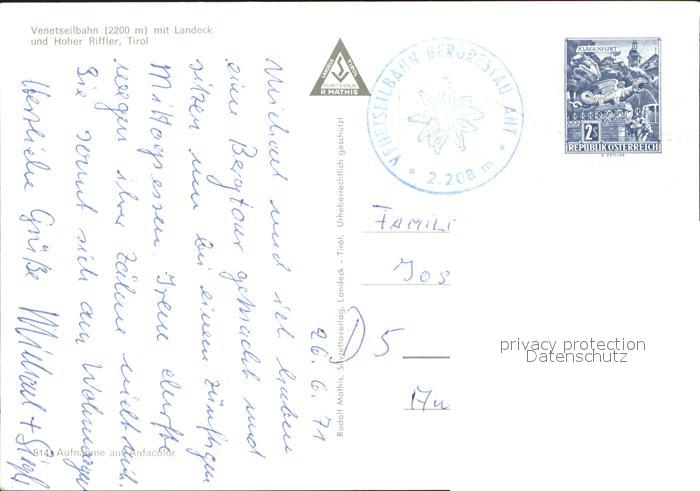 Venetseilbahn (2200 m) mit Landeck
und Hoher Riffler, Tirol
26. 6. 71
Michael und ich haben
eine Bergtour gemacht und
sitzen nun bei einem zünftigen
Mittagessen. Irene durfte
wegen ihrer Zähne nicht mit.
Sie sonnt sich am Wohnwagen
Herzliche Grüße Michael +
914 Aufnahme auf Agfacolor
Rudolf Mathis, Silvrettaverlag, Landeck - Tirol. Urheberrechtlich geschützt!
R. MATHIS
VENETSEILBAHN BERGRESTAURANT
2.208 m
KLAGENFURT
2S
REPUBLIK ÖSTERREICH
FAMILI
Jos
5
privacy protection
Datenschutz